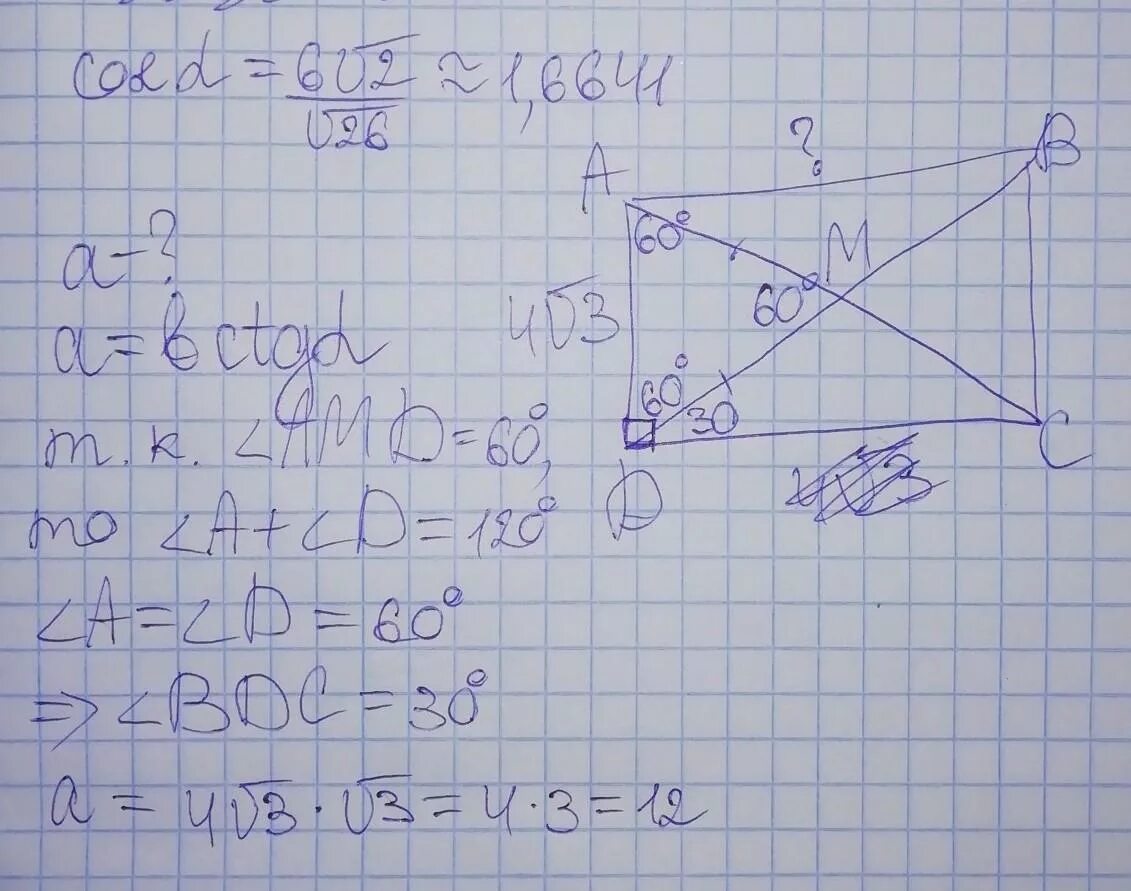 cos α = 6√2 / √26 ≈ 1,6641
a - ?
a = b ctg α
т.к. ∠AMD = 60°,
то ∠A + ∠D = 120°
∠A = ∠D = 60°
⇒ ∠BDC = 30°
a = 4√3 · √3 = 4 · 3 = 12
A
?
B
60°
M
60°
4√3
60°
30
D
C